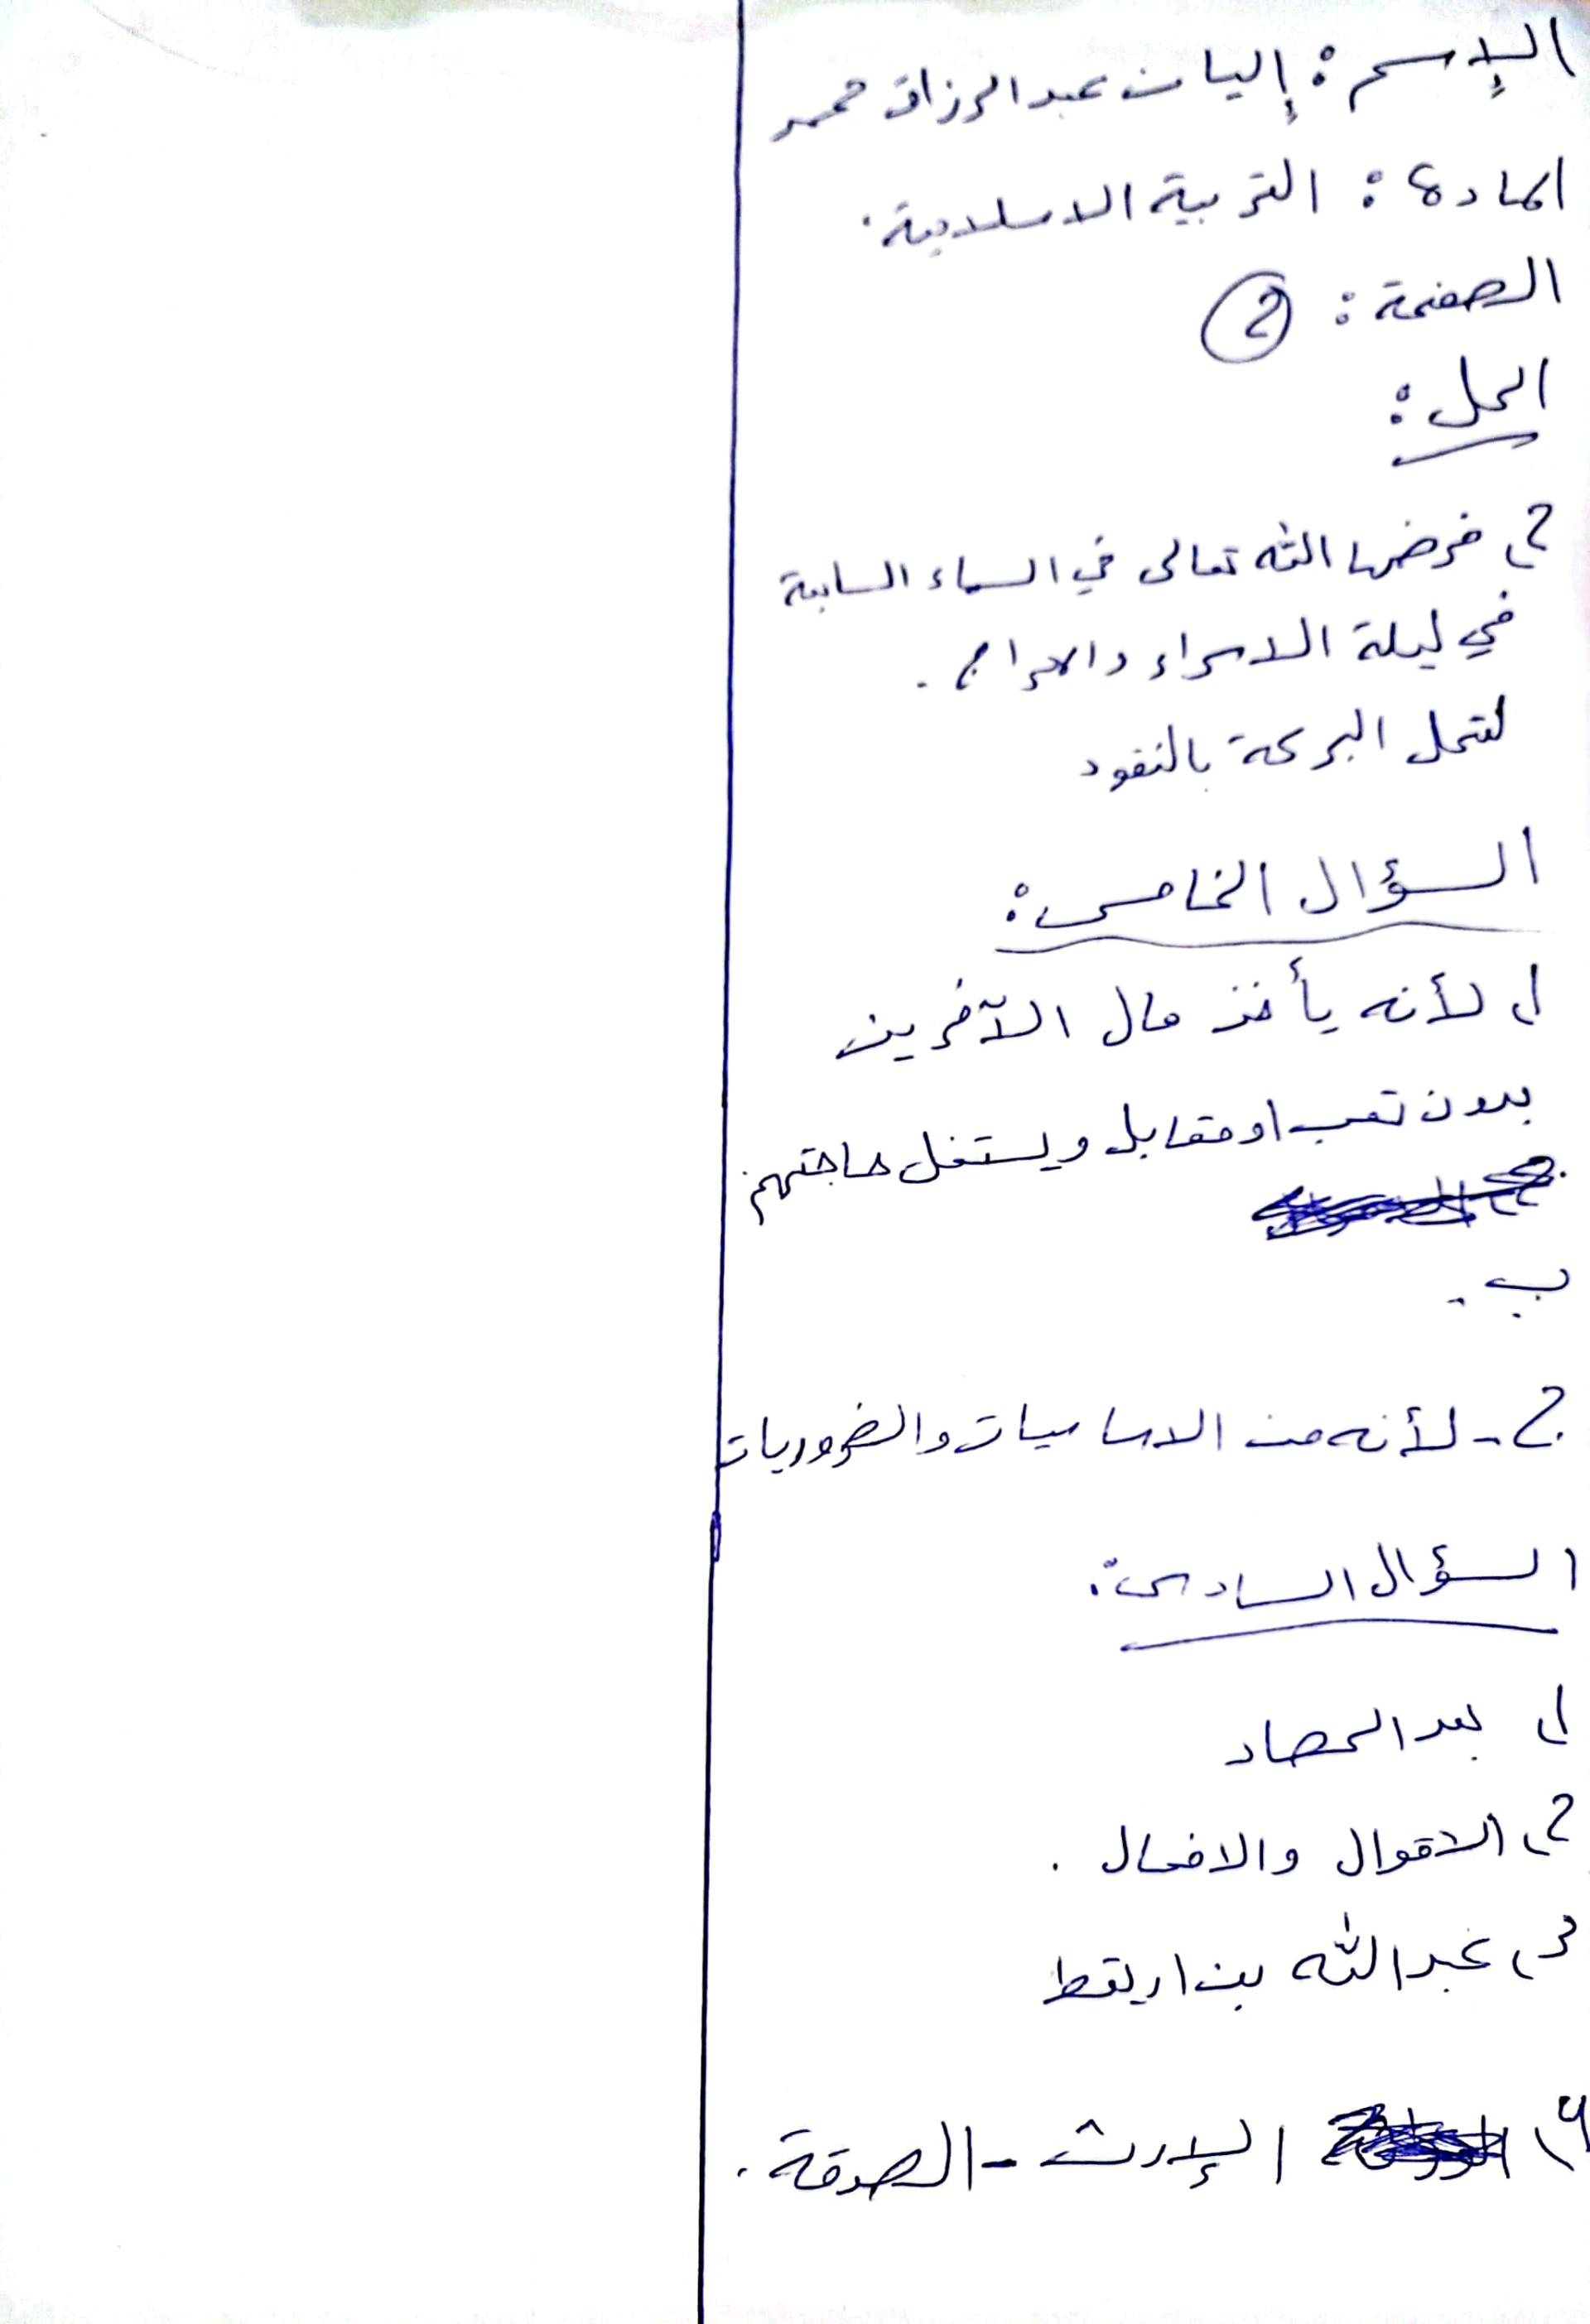 الإسم : إليان عبدالرزاق محمد
المادة : التربية الاسلامية .
الصفحة : 2
الحل :
2) فرضها الله تعالى في السماء السابعة
في ليلة الاسراء والمعراج .
لتحل البركة بالنقود
السؤال الخامس :
1) لأنه يأخذ مال الآخرين
بدون تعب او مقابل ويستغل حاجتهم .
ب -
2 - لأنه من الاساسيات والضروريات
السؤال السادس :
1) بعد الحصاد
2) الاقوال والافعال .
3) عبدالله بن اريقط
4) الإرث - الصدقة .